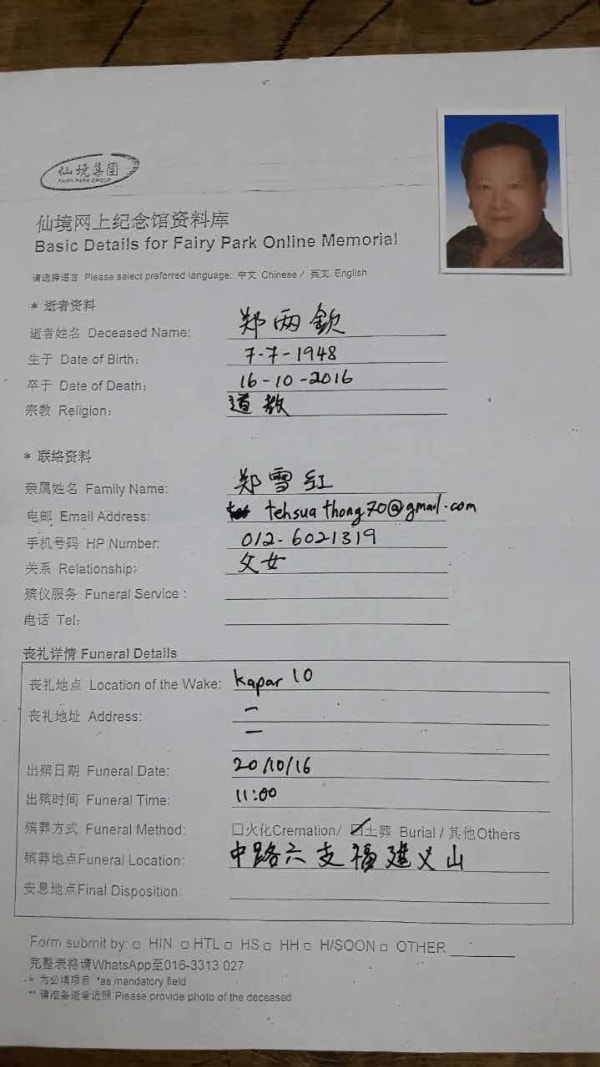 仙境集团
FAIRY PARK GROUP
仙境网上纪念馆资料库
Basic Details for Fairy Park Online Memorial
请选择语言 Please select preferred language: 中文 Chinese / 英文 English
* 逝者资料
逝者姓名 Deceased Name: 郑两钦
生于 Date of Birth: 7-7-1948
卒于 Date of Death: 16-10-2016
宗教 Religion: 道教
* 联络资料
亲属姓名 Family Name: 郑雪红
电邮 Email Address: tehsuathong70@gmail.com
手机号码 HP Number: 012-6021319
关系 Relationship: 父女
殡仪服务 Funeral Service :
电话 Tel:
丧礼详情 Funeral Details
丧礼地点 Location of the Wake: Kapar 10
丧礼地址 Address: —
—
出殡日期 Funeral Date: 20/10/16
出殡时间 Funeral Time: 11:00
殡葬方式 Funeral Method: ☐火化Cremation/ ☑土葬 Burial / 其他Others
殡葬地点Funeral Location: 中路六支福建义山
安息地点Final Disposition:
Form submit by: □ HIN □ HTL □ HS □ HH □ H/SOON □ OTHER ________
完整表格请WhatsApp至016-3313 027
* 为必填项目 *as mandatory field
** 请准备逝者近照 Please provide photo of the deceased